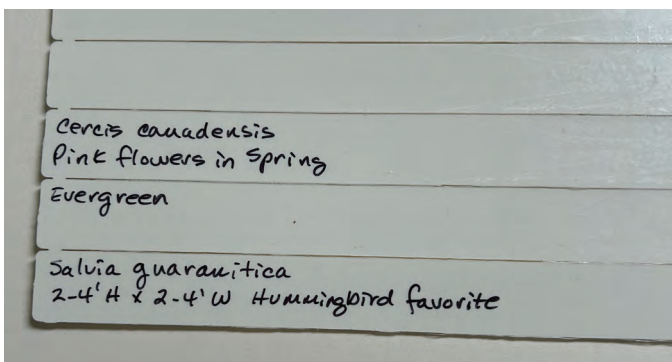 Cercis canadensis
Pink flowers in Spring
Evergreen
Salvia guaranitica
2-4' H x 2-4' W Hummingbird favorite